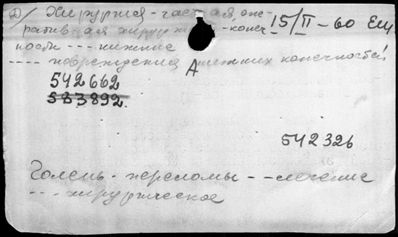 Д) Хирургия - частная, опе- 15/II - 60 Ещ
ративная хирургия - конеч
ности - - - нижние
- - - - повреждения нижних конечностей
542662
583892.
542326
Голень - переломы - - лечение
- - - хирургическое